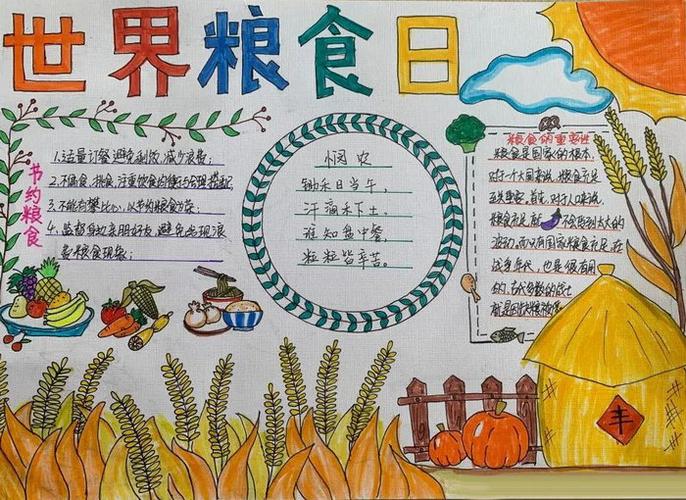 世界粮食日
节约粮食
1.适量订餐,避免剩饭,减少浪费;
2.不偏食,挑食,注重饮食均衡与合理搭配;
3.不能有攀比心,以节约粮食为荣;
4.监督身边亲朋好友,避免出现浪
费粮食现象;
悯农
锄禾日当午,
汗滴禾下土。
谁知盘中餐,
粒粒皆辛苦。
粮食的重要性
粮食是国家的根本,
对于个大国来说,粮食充足
至关重要。首先,对于人口来说,
粮食充足就 不会受到太大的
波动,而只有国家粮食充足,在
战争年代,也是很有用
的,古代多数的战士
都是因为粮被
丰